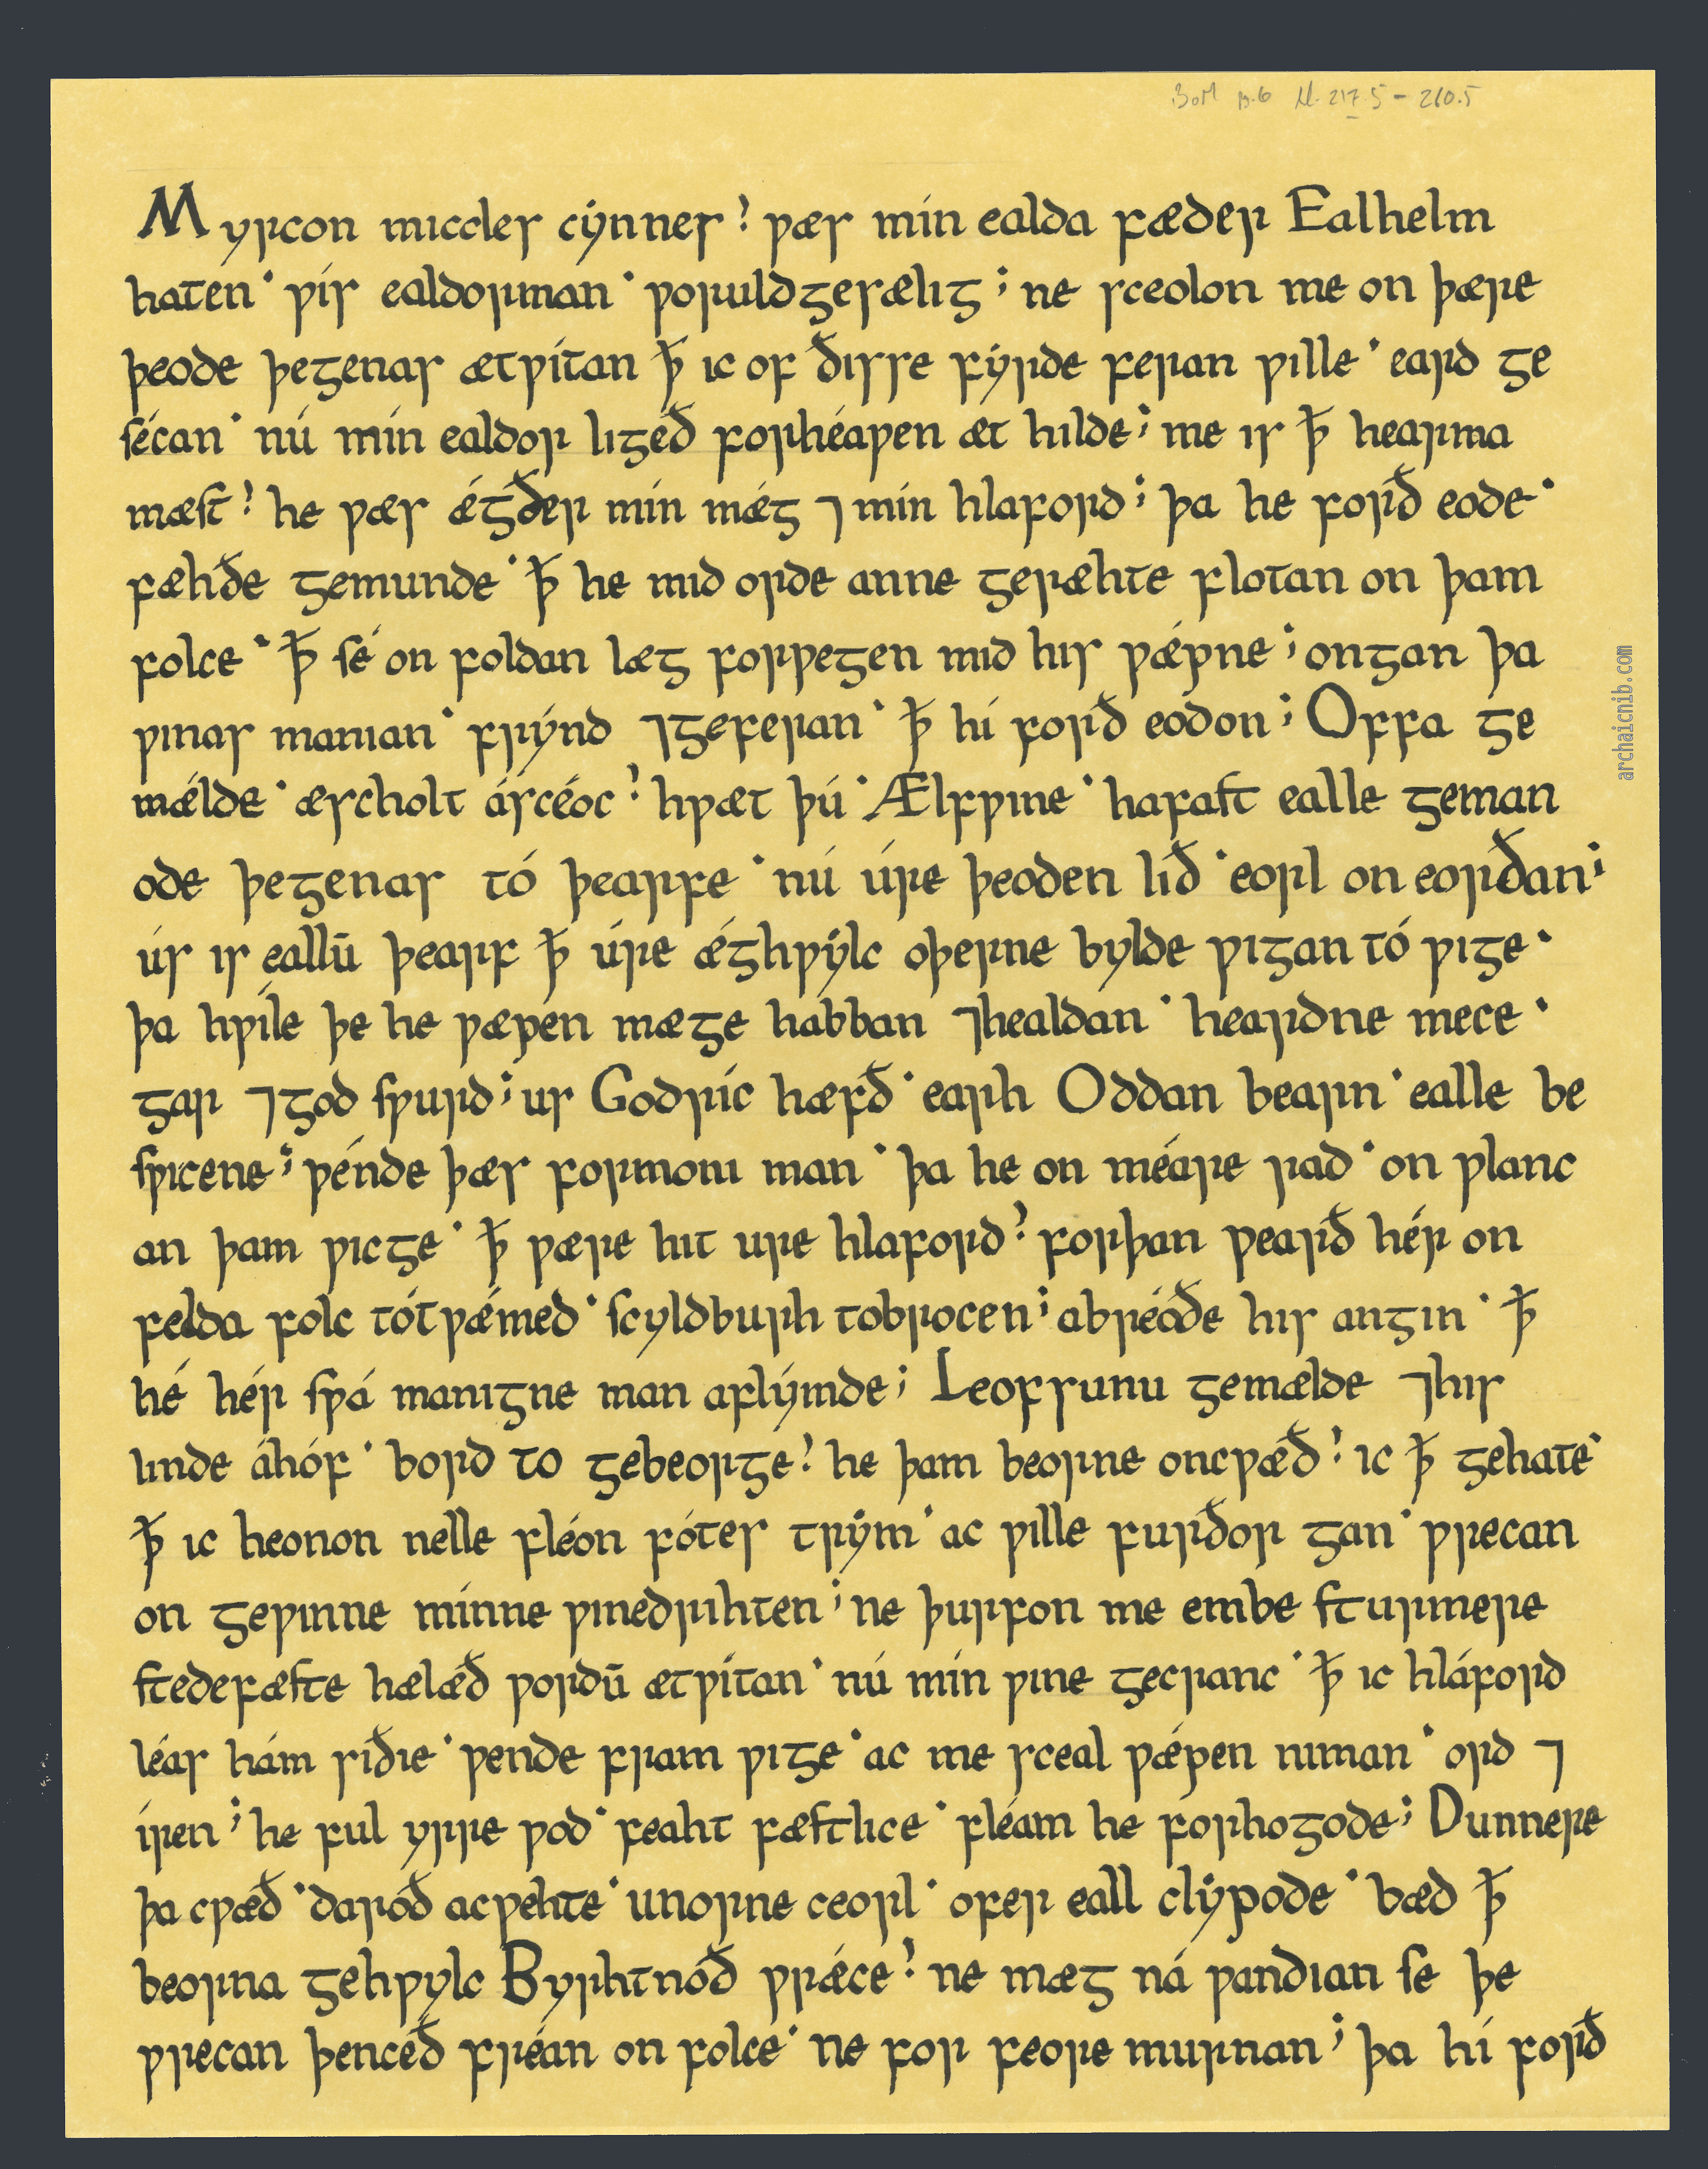 BoM p.6 ll. 217.5 – 260.5
Myrcon miccles cýnnes? ƿæs mín ealda fæder Ealhelm
haten· ƿís ealdorman· ƿoruldgesælig; ne sceolon me on þære
þeode þegenas ætƿítan ꝥ ic of ðisse fýrde feran ƿille· eard ge
sécan· nú mín ealdor ligeð forhéaƿen æt hilde; me is ꝥ hearma
mæst? he ƿæs ǽgðer mín mǽg ⁊ mín hlaford; þa he forð eode·
fæhðe gemunde· ꝥ he mid orde anne geræhte flotan on þam
folce· ꝥ sé on foldan læg forƿegen mid his ƿǽpne; ongan þa
ƿinas manian· frýnd ⁊geferan· ꝥ hí forð eodon; Offa ge
mǽlde· æscholt áscéoc? hƿæt þú· Ælfƿine· hafast ealle geman
ode þegenas tó þearfe· nú úre þeoden líð· eorl on eorðan;
ús is eallū þearf ꝥ úre ǽghƿýlc oþerne bylde ƿigan tó ƿige·
þa hƿíle þe he ƿæpen mæge habban ⁊healdan· heardne mece·
gar ⁊god sƿurd; us Godríc hæfð· earh Oddan bearn· ealle be
sƿicene; ƿénde þæs formoni man· þa he on méare rad· on ƿlanc
an þam ƿicge· ꝥ ƿære hit ure hlaford? forþan ƿearð hér on
felda folc tótƿǽmed· scyldburh tobrocen; abréoðe his angin· ꝥ
hé hér sƿá manigne man aflýmde; Leofsunu gemælde ⁊his
linde áhóf· bord to gebeorge? he þam beorne oncƿæð? ic ꝥ gehate·
ꝥ ic heonon nelle fléon fótes trým· ac ƿille furðor gan· ƿrecan
on geƿinne mínne ƿinedrihten; ne þurfon me embe sturmere
stedefæste hælǽð ƿordū ætƿítan· nú mín ƿine gecranc· ꝥ ic hláford
léas hám siðie· ƿende fram ƿige· ac me sceal ƿǽpen niman· ord ⁊
íren; he ful yrre ƿod· feaht fæstlice· fléam he forhogode; Dunnere
þa cƿæð· daroð acƿehte· unorne ceorl· ofer eall clýpode· bæd ꝥ
beorna gehƿylc Byrhtnóð ƿrǽce? ne mæg ná ƿandian se þe
ƿrecan þenceð fréan on folce· ne for feore murnan; þa hí forð
archaicnib.com